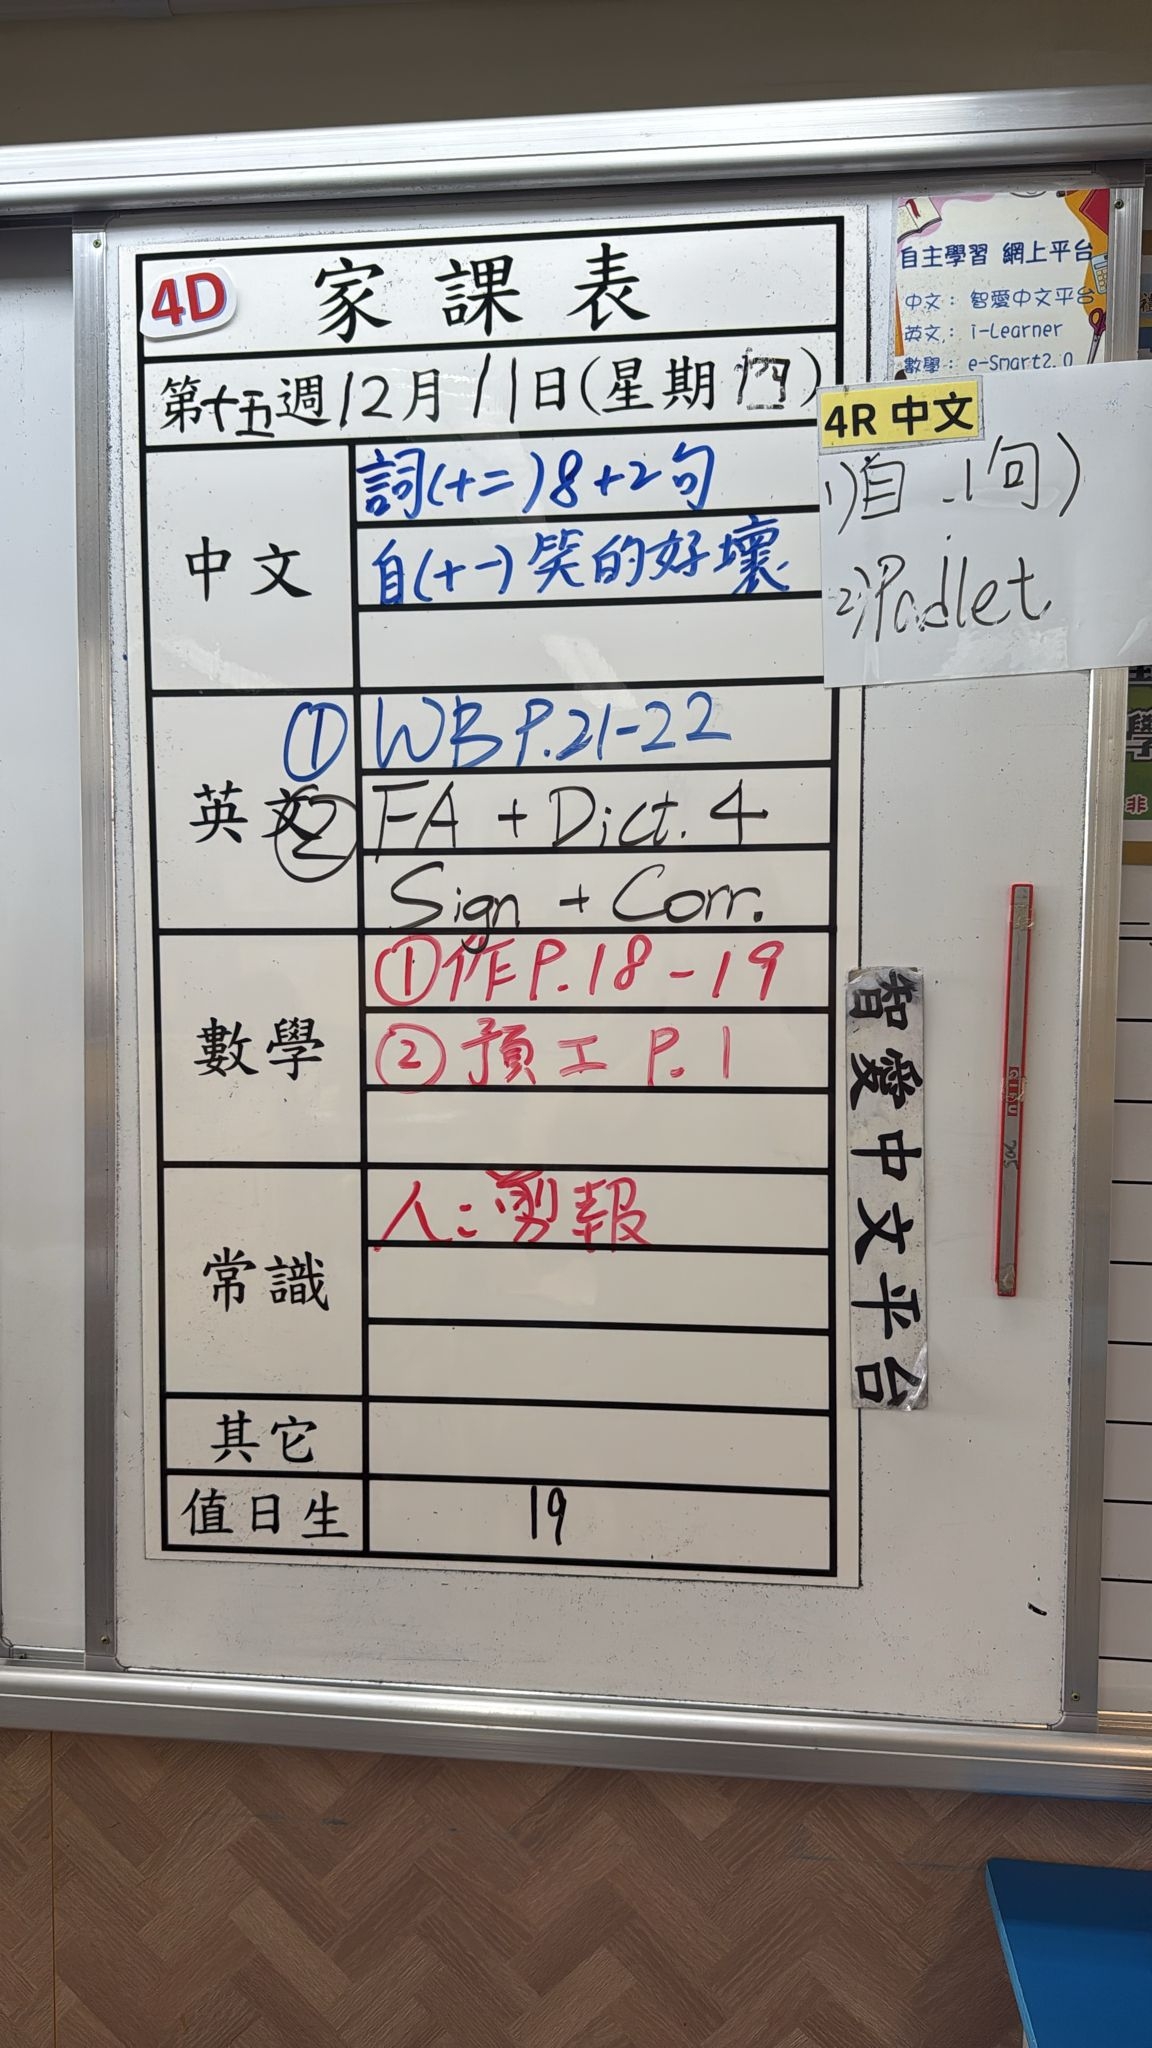 4D 家課表
第十五週12月11日(星期四)
中文
詞(十二)8+2句
自(十一)笑的好壞
英文
① WB P.21-22
② FA + Dict. 4
Sign + Corr.
數學
①作P.18-19
②預工 P.1
常識
人:剪報
其它
值日生 19
自主學習 網上平台
中文:智愛中文平台
英文:i-Learner
數學:e-Smart2.0
4R 中文
1)自 1句)
2)Padlet
智愛中文平台
學
非